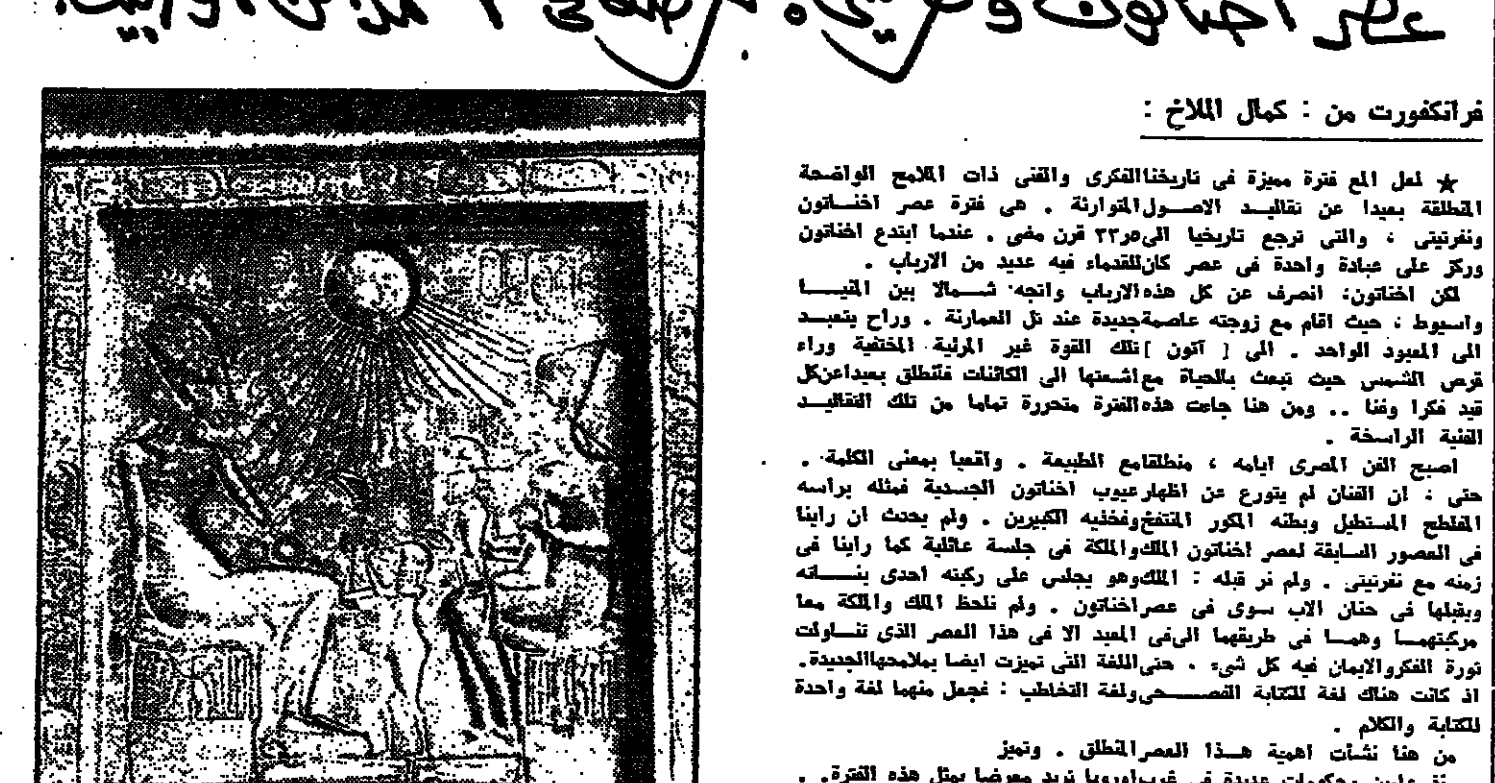 عصر اخناتون و
فرانكفورت من : كمال الملاخ :
★ لعل المع فترة مميزة فى تاريخنا الفكرى والفنى ذات الملامح الواضحة
المنطلقة بعيدا عن تقاليد الاصول المتوارثة . هى فترة عصر اخناتون
ونفرتيتى ، والتى ترجع تاريخيا الى ٣٣٫٥ قرن مضى . عندما ابتدع اخناتون
وركز على عبادة واحدة فى عصر كان للقدماء فيه عديد من الارباب .
لكن اخناتون: انصرف عن كل هذه الارباب واتجه شمالا بين المنيا
واسيوط ، حيث اقام مع زوجته عاصمة جديدة عند تل العمارنة . وراح يتعبد
الى المعبود الواحد . الى [ آتون ] تلك القوة غير المرئية المختفية وراء
قرص الشمس حيث تبعث بالحياة مع اشعتها الى الكائنات فتنطلق بعيدا عن كل
قيد فكرا وفنا .. ومن هنا جاءت هذه الفترة متحررة تماما من تلك التقاليد
الفنية الراسخة .
اصبح الفن المصرى ايامه ، منطلقا مع الطبيعة . واقعيا بمعنى الكلمة .
حتى ، ان الفنان لم يتورع عن اظهار عيوب اخناتون الجسدية فمثله براسه
المفلطح المستطيل وبطنه المكور المنتفخ وفخذيه الكبيرين . ولم يحدث ان راينا
فى العصور السابقة لعصر اخناتون الملك والملكة فى جلسة عائلية كما راينا فى
زمنه مع نفرتيتى . ولم نر قبله : الملك وهو يجلس على ركبته احدى بناته
ويقبلها فى حنان الاب سوى فى عصر اخناتون . ولم نلحظ الملك والملكة معا
مركبتهما وهما فى طريقهما الى فى المعبد الا فى هذا العصر الذى تناولت
ثورة الفكر والايمان فيه كل شىء . حتى اللغة التى تميزت ايضا بملامحها الجديدة.
اذ كانت هناك لغة للكتابة الفصحى ولغة التخاطب : فجعل منهما لغة واحدة
للكتابة والكلام .
من هنا نشأت اهمية هذا العصر المنطلق . وتميز
حكومات عديدة فى غرب اوروبا تريد معرضا يمثل هذه الفترة. .